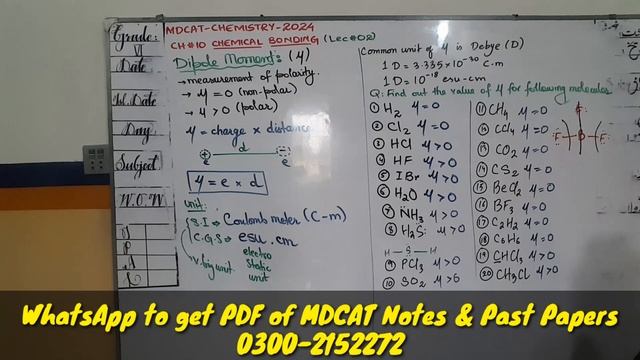 Grade:
VI
Date
Day:
Subject
W.O.W
MDCAT-CHEMISTRY-2024
CH#10 CHEMICAL BONDING (Lec#02)
Dipole Moment:s (μ)
→ measurement of polarity.
→ μ = 0 (non-polar)
→ μ > 0 (polar)
μ = charge × distance
d
e
μ = e × d
unit:
S.I → Coulomb meter (C-m)
C.G.S → esu.cm
v.big unit
electro
static
unit
Common unit of μ is Debye (D)
1D = 3.335×10⁻³⁰ C.m
1D = 10⁻¹⁸ esu-cm
Q: Find out the value of μ for following molecules
① H₂ μ = 0
② Cl₂ μ = 0
③ HCl μ > 0
④ HF μ > 0
⑤ IBr μ > 0
⑥ H₂O μ > 0
⑦ NH₃ μ > 0
⑧ H₂S: μ > 0
H – S – H
⑨ PCl₃ μ > 0
⑩ SO₂ μ > 0
⑪ CH₄ μ = 0
⑫ CCl₄ μ = 0
⑬ CO₂ μ = 0
⑭ CS₂ μ = 0
⑮ BeCl₂ μ = 0
⑯ BF₃ μ = 0
⑰ C₂H₂ μ = 0
⑱ C₆H₆ μ = 0
⑲ CHCl₃ μ > 0
⑳ CH₃Cl μ > 0
F B F
WhatsApp to get PDF of MDCAT Notes & Past Papers
0300-2152272